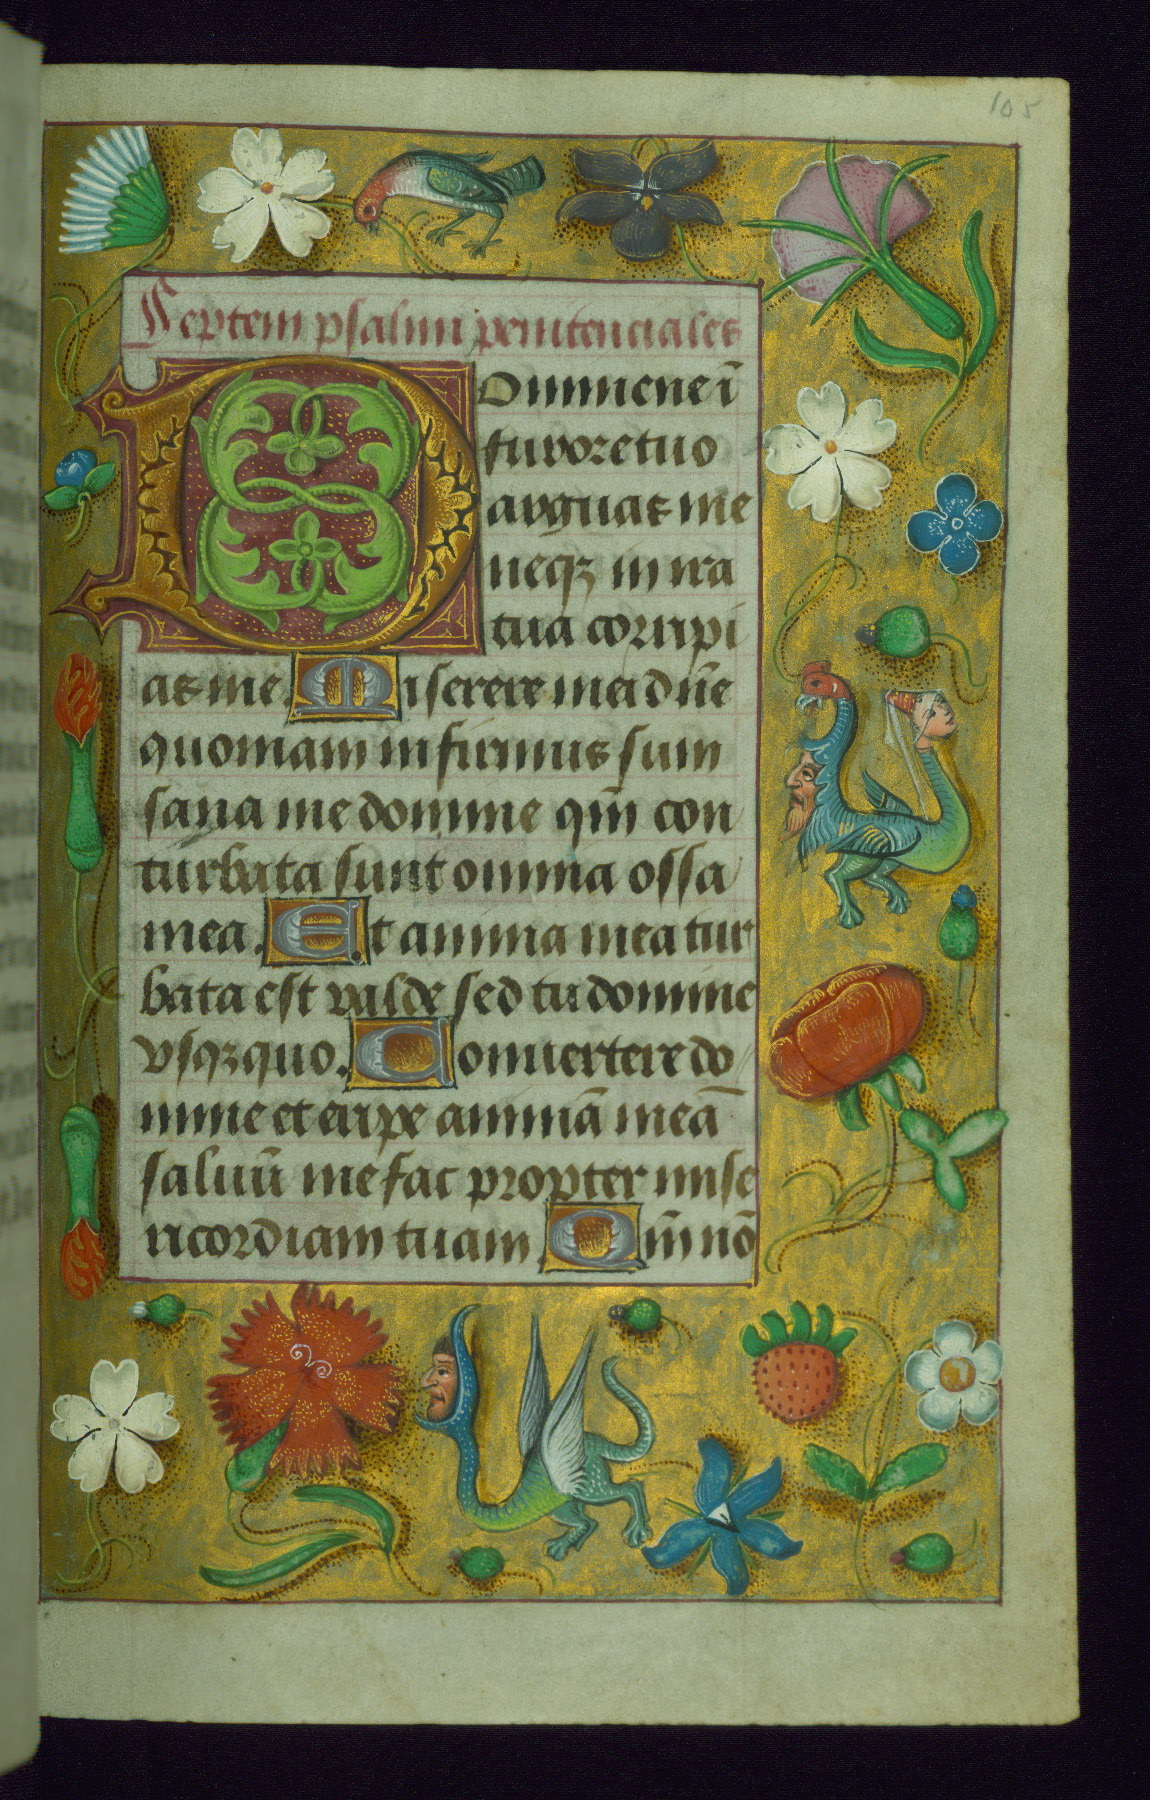 105
Septem psalmi penitenciales
Domine ne ī
furore tuo
arguas me
neqꝫ in ira
tua corripi
as me. Miserere mei dn̄e
quoniam infirmus sum
sana me domine qm̄ con
turbata sunt omnia ossa
mea. Et anima mea tur
bata est valde sed tu domine
vsqꝫquo. Conuertere do
mine et eripe animā meā
saluū me fac propter mise
ricordiam tuam. Qm̄ nō